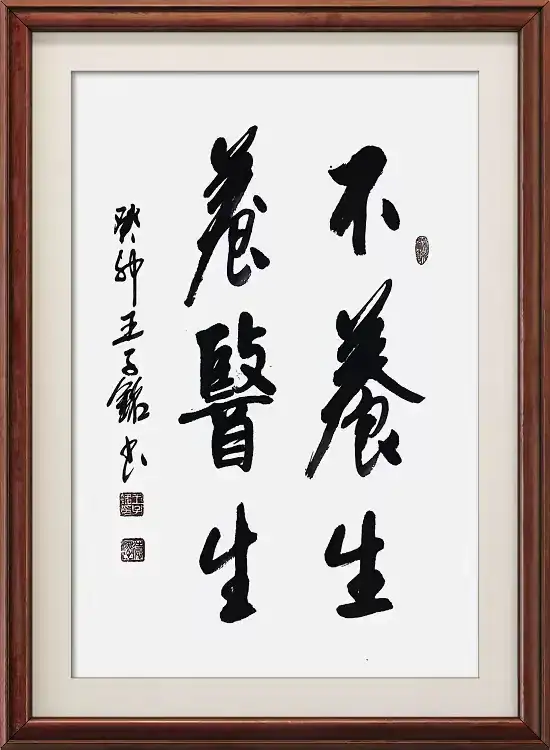 不養生
養醫生
癸卯王子銘书